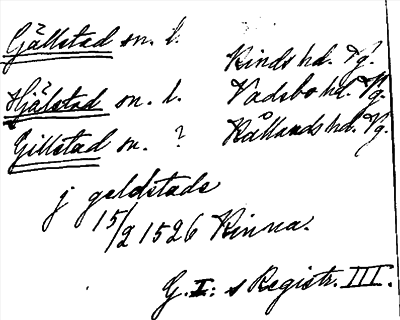 Gällstad sn. l. Kinds hd. Vg.
Hjälstad sn. l. Vadsbo hd. Vg.
Gillstad sn. ? Kållands hd. Vg.
j geldstade
15/2 1526 Kinna.
G. I: s Registr. III.